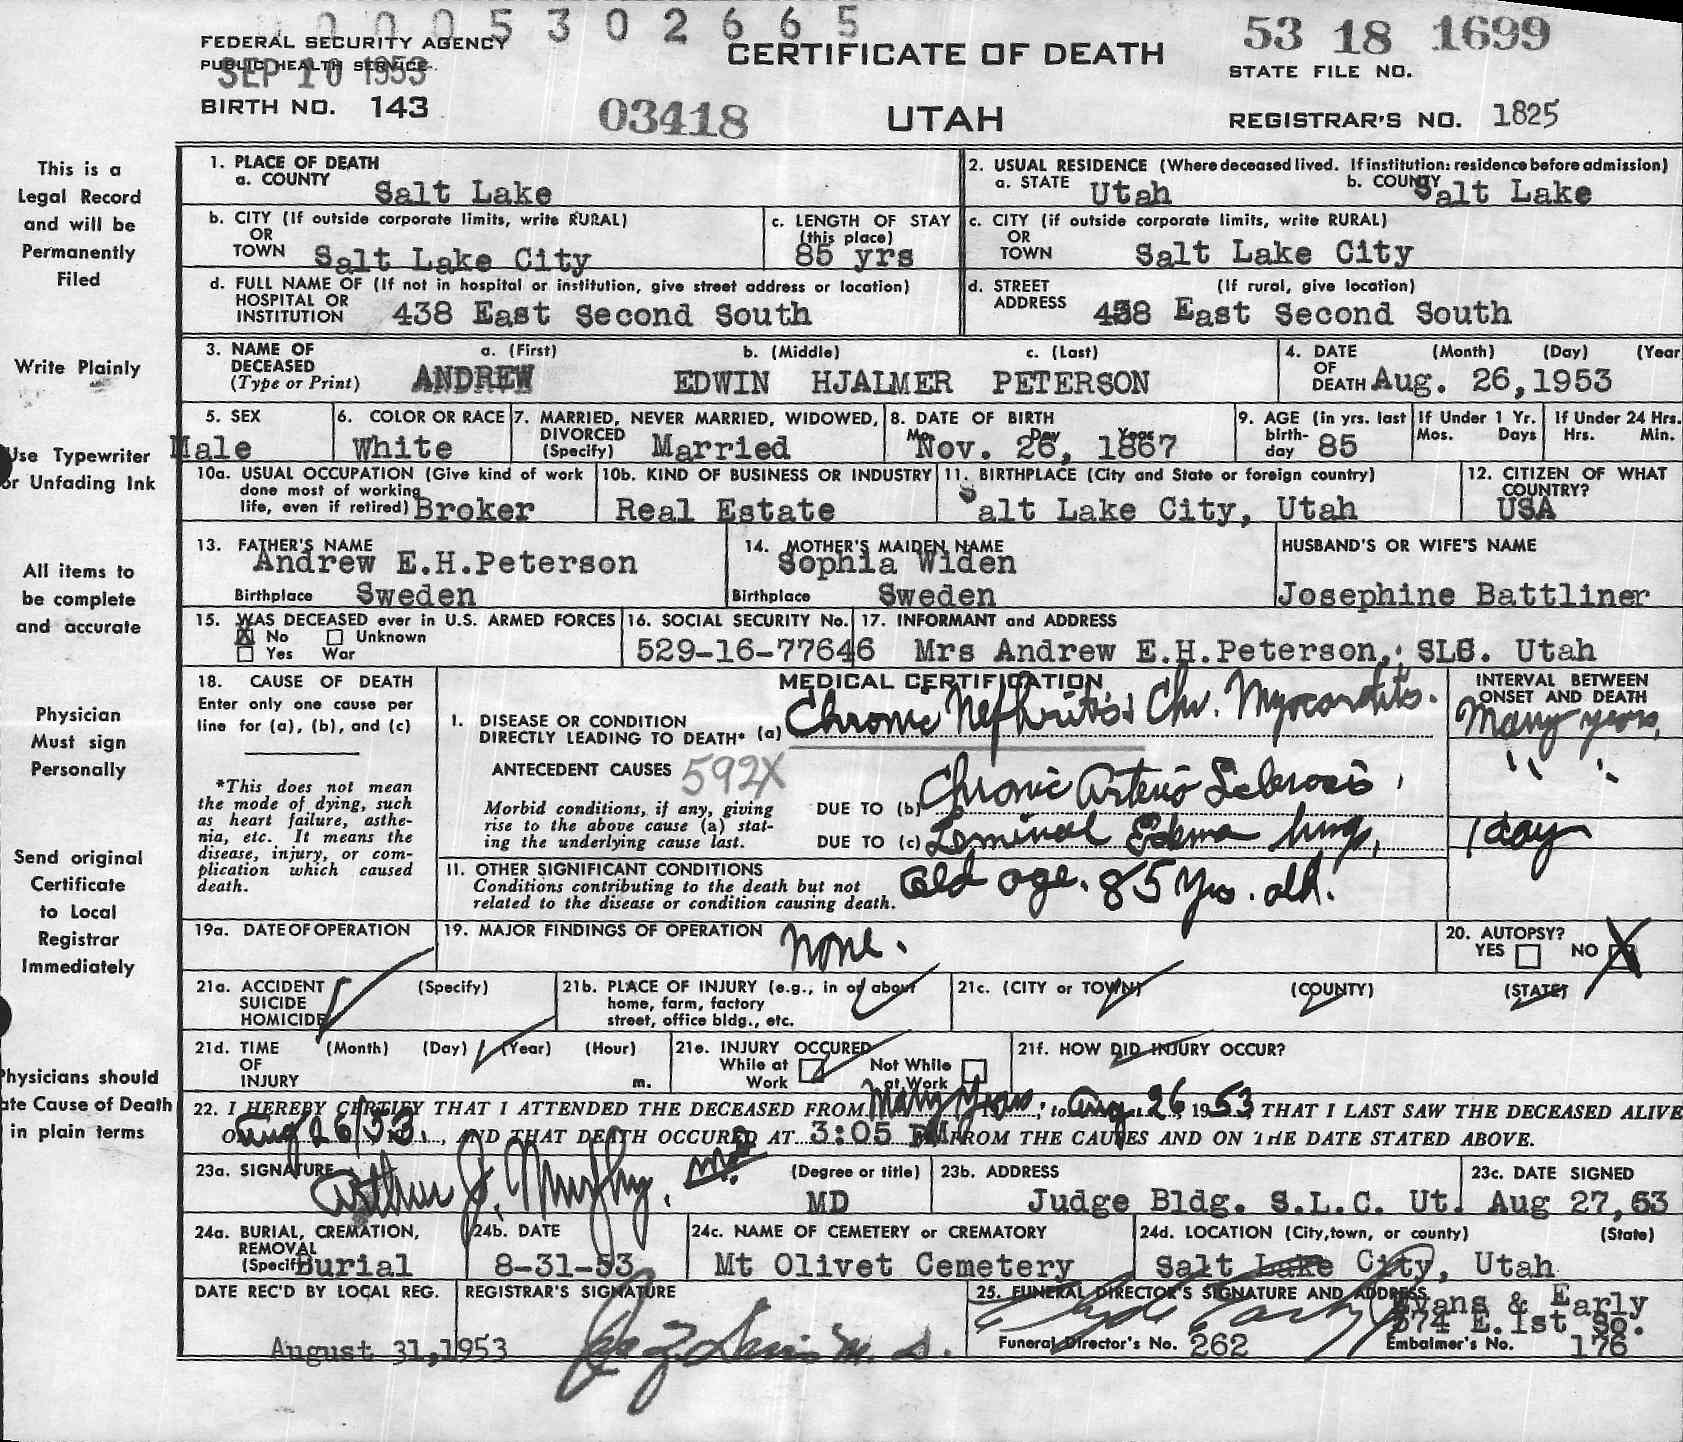 0005302665
FEDERAL SECURITY AGENCY
PUBLIC HEALTH SERVICE
SEP 10 1953
BIRTH NO. 143
03418
CERTIFICATE OF DEATH
UTAH
53 18 1699
STATE FILE NO.
REGISTRAR'S NO. 1825
This is a
Legal Record
and will be
Permanently
Filed
Write Plainly
Use Typewriter
or Unfading Ink
All items to
be complete
and accurate
Physician
Must sign
Personally
Send original
Certificate
to Local
Registrar
Immediately
Physicians should
ate Cause of Death
in plain terms
1. PLACE OF DEATH
a. COUNTY Salt Lake
2. USUAL RESIDENCE (Where deceased lived. If institution: residence before admission)
a. STATE Utah b. COUNTY Salt Lake
b. CITY (If outside corporate limits, write RURAL)
OR
TOWN Salt Lake City
c. LENGTH OF STAY
(this place)
85 yrs
c. CITY (if outside corporate limits, write RURAL)
OR
TOWN Salt Lake City
d. FULL NAME OF (If not in hospital or institution, give street address or location)
HOSPITAL OR
INSTITUTION 438 East Second South
d. STREET (If rural, give location)
ADDRESS 438 East Second South
3. NAME OF a. (First) b. (Middle) c. (Last)
DECEASED
(Type or Print) ANDREW EDWIN HJALMER PETERSON
4. DATE (Month) (Day) (Year
OF
DEATH Aug. 26,1953
5. SEX
Male
6. COLOR OR RACE
White
7. MARRIED, NEVER MARRIED, WIDOWED,
DIVORCED
(Specify) Married
8. DATE OF BIRTH
Mo. Day Year
Nov. 26, 1867
9. AGE (in yrs. last
birth-
day 85
If Under 1 Yr.
Mos. Days
If Under 24 Hrs.
Hrs. Min.
10a. USUAL OCCUPATION (Give kind of work
done most of working
life, even if retired) Broker
10b. KIND OF BUSINESS OR INDUSTRY
Real Estate
11. BIRTHPLACE (City and State or foreign country)
Salt Lake City, Utah
12. CITIZEN OF WHAT
COUNTRY?
USA
13. FATHER'S NAME
Andrew E.H.Peterson
Birthplace Sweden
14. MOTHER'S MAIDEN NAME
Sophia Widen
Birthplace Sweden
HUSBAND'S OR WIFE'S NAME
Josephine Battliner
15. WAS DECEASED ever in U.S. ARMED FORCES
X No Unknown
Yes War
16. SOCIAL SECURITY No.
529-16-77646
17. INFORMANT and ADDRESS
Mrs Andrew E.H.Peterson, SLC. Utah
18. CAUSE OF DEATH
Enter only one cause per
line for (a), (b), and (c)
*This does not mean
the mode of dying, such
as heart failure, asthe-
nia, etc. It means the
disease, injury, or com-
plication which caused
death.
MEDICAL CERTIFICATION
INTERVAL BETWEEN
ONSET AND DEATH
1. DISEASE OR CONDITION
DIRECTLY LEADING TO DEATH* (a) Chronic Nephritis & Chr. Myocarditis.
Many years,
ANTECEDENT CAUSES 592X
Morbid conditions, if any, giving
rise to the above cause (a) stat-
ing the underlying cause last.
DUE TO (b) Chronic Arterio Sclerosis,
" "
DUE TO (c) Terminal Edema lungs,
1 day
11. OTHER SIGNIFICANT CONDITIONS
Conditions contributing to the death but not
related to the disease or condition causing death.
Old age. 85 yrs. old.
19a. DATE OF OPERATION
19. MAJOR FINDINGS OF OPERATION
None.
20. AUTOPSY?
YES NO X
21a. ACCIDENT (Specify)
SUICIDE
HOMICIDE
21b. PLACE OF INJURY (e.g., in or about
home, farm, factory
street, office bldg., etc.
21c. (CITY or TOWN) (COUNTY) (STATE)
21d. TIME (Month) (Day) (Year) (Hour)
OF
INJURY m.
21e. INJURY OCCURED
While at Work
Not While at Work
21f. HOW DID INJURY OCCUR?
22. I HEREBY CERTIFY THAT I ATTENDED THE DECEASED FROM Many Years, to Aug. 26 1953 THAT I LAST SAW THE DECEASED ALIVE
ON Aug 26/53, AND THAT DEATH OCCURED AT 3:05 PM FROM THE CAUSES AND ON THE DATE STATED ABOVE.
23a. SIGNATURE (Degree or title)
Arthur J. Murphy, MD. MD
23b. ADDRESS
Judge Bldg. S.L.C. Ut.
23c. DATE SIGNED
Aug 27,53
24a. BURIAL, CREMATION,
REMOVAL
(Specify) Burial
24b. DATE
8-31-53
24c. NAME OF CEMETERY or CREMATORY
Mt Olivet Cemetery
24d. LOCATION (City,town, or county) (State)
Salt Lake City, Utah
DATE REC'D BY LOCAL REG.
August 31,1953
REGISTRAR'S SIGNATURE
M. D.
25. FUNERAL DIRECTOR'S SIGNATURE AND ADDRESS
Evans & Early
574 E.1st So.
Funeral Director's No. 262
Embalmer's No. 176